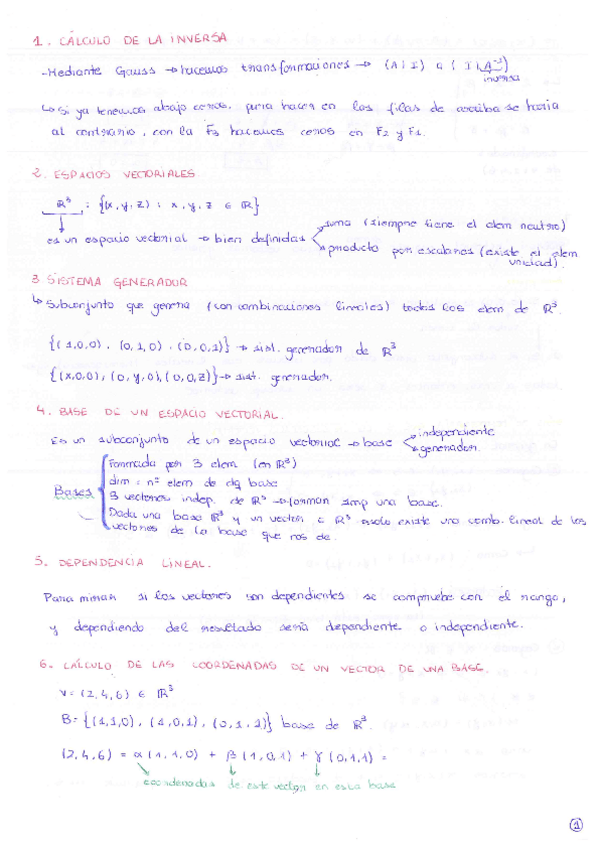 1. CÁLCULO DE LA INVERSA
-Mediante Gauss → hacemos transformaciones → (A | I) a ( I | A⁻¹)
inversa
↳ Si ya tenemos abajo ceros, para hacer en las filas de arriba se haría
al contrario, con la F3 hacemos ceros en F2 y F1.
2. ESPACIOS VECTORIALES.
ℝ³ : {(x, y, z) : x, y, z ∈ ℝ}
suma (siempre tiene el elem neutro)
es un espacio vectorial → bien definidas
producto por escalares (existe el elem
unidad).
3 SISTEMA GENERADOR
↳ Subconjunto que genera (con combinaciones lineales) todos los elem de ℝ³.
{(1,0,0), (0,1,0), (0,0,1)} → sist. generador de ℝ³
{(x,0,0), (0,y,0), (0,0,z)} → sist. generador.
4. BASE DE UN ESPACIO VECTORIAL.
Es un subconjunto de un espacio vectorial → base
independiente
generador.
Bases
Formada por 3 elem (en ℝ³)
dim : nº elem de dq base
3 vectores indep. de ℝ³ → forman smp una base.
Dada una base ℝ³ y un vector ∈ ℝ³ solo existe una comb. lineal de los
vectores de la base que nos de.
5. DEPENDENCIA LINEAL.
Para mirar si los vectores son dependientes se comprueba con el rango,
y dependiendo del resultado sería dependiente o independiente.
6. CÁLCULO DE LAS COORDENADAS DE UN VECTOR DE UNA BASE.
V = (2, 4, 6) ∈ ℝ³
B = {(1,1,0), (1,0,1), (0,1,1)} base de ℝ³.
(2,4,6) = α (1,1,0) + β (1,0,1) + γ (0,1,1) =
coordenadas de este vector en esta base
1